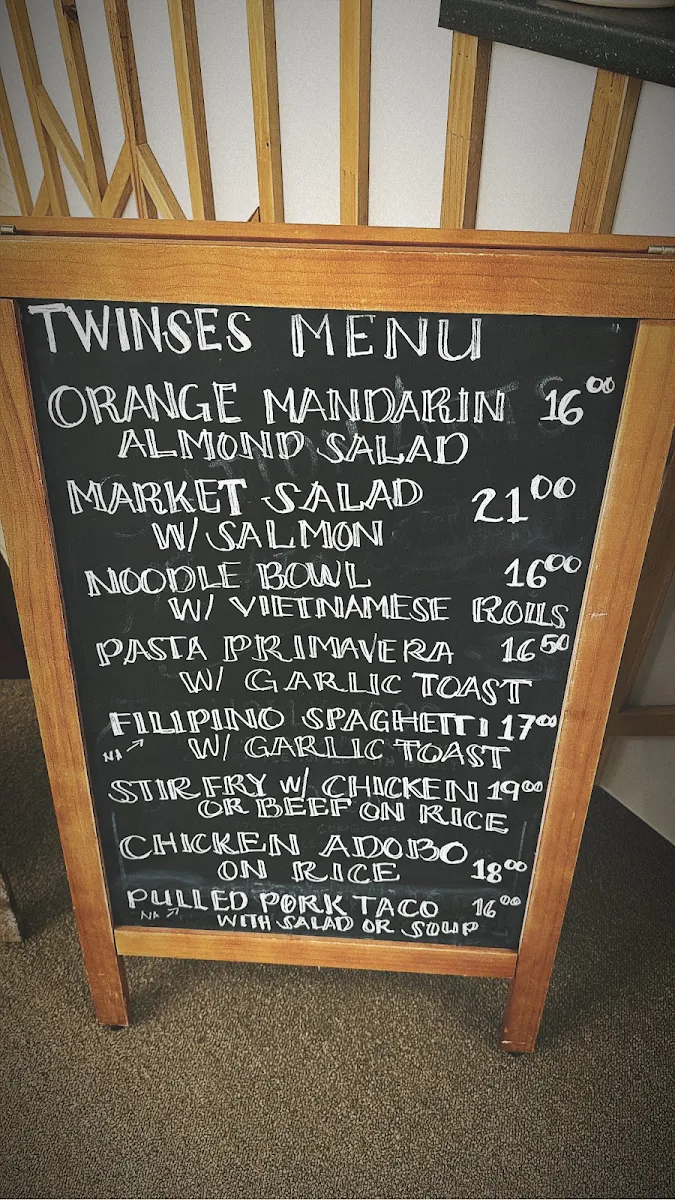 TWINSES MENU
ORANGE MANDARIN 16⁰⁰
ALMOND SALAD
MARKET SALAD 21⁰⁰
W/ SALMON
NOODLE BOWL 16⁰⁰
W/ VIETNAMESE ROLLS
PASTA PRIMAVERA 16⁵⁰
W/ GARLIC TOAST
FILIPINO SPAGHETTI 17⁰⁰
NA W/ GARLIC TOAST
STIR FRY W/ CHICKEN 19⁰⁰
OR BEEF ON RICE
CHICKEN ADOBO
ON RICE 18⁰⁰
PULLED PORK TACO 16⁰⁰
NA WITH SALAD OR SOUP